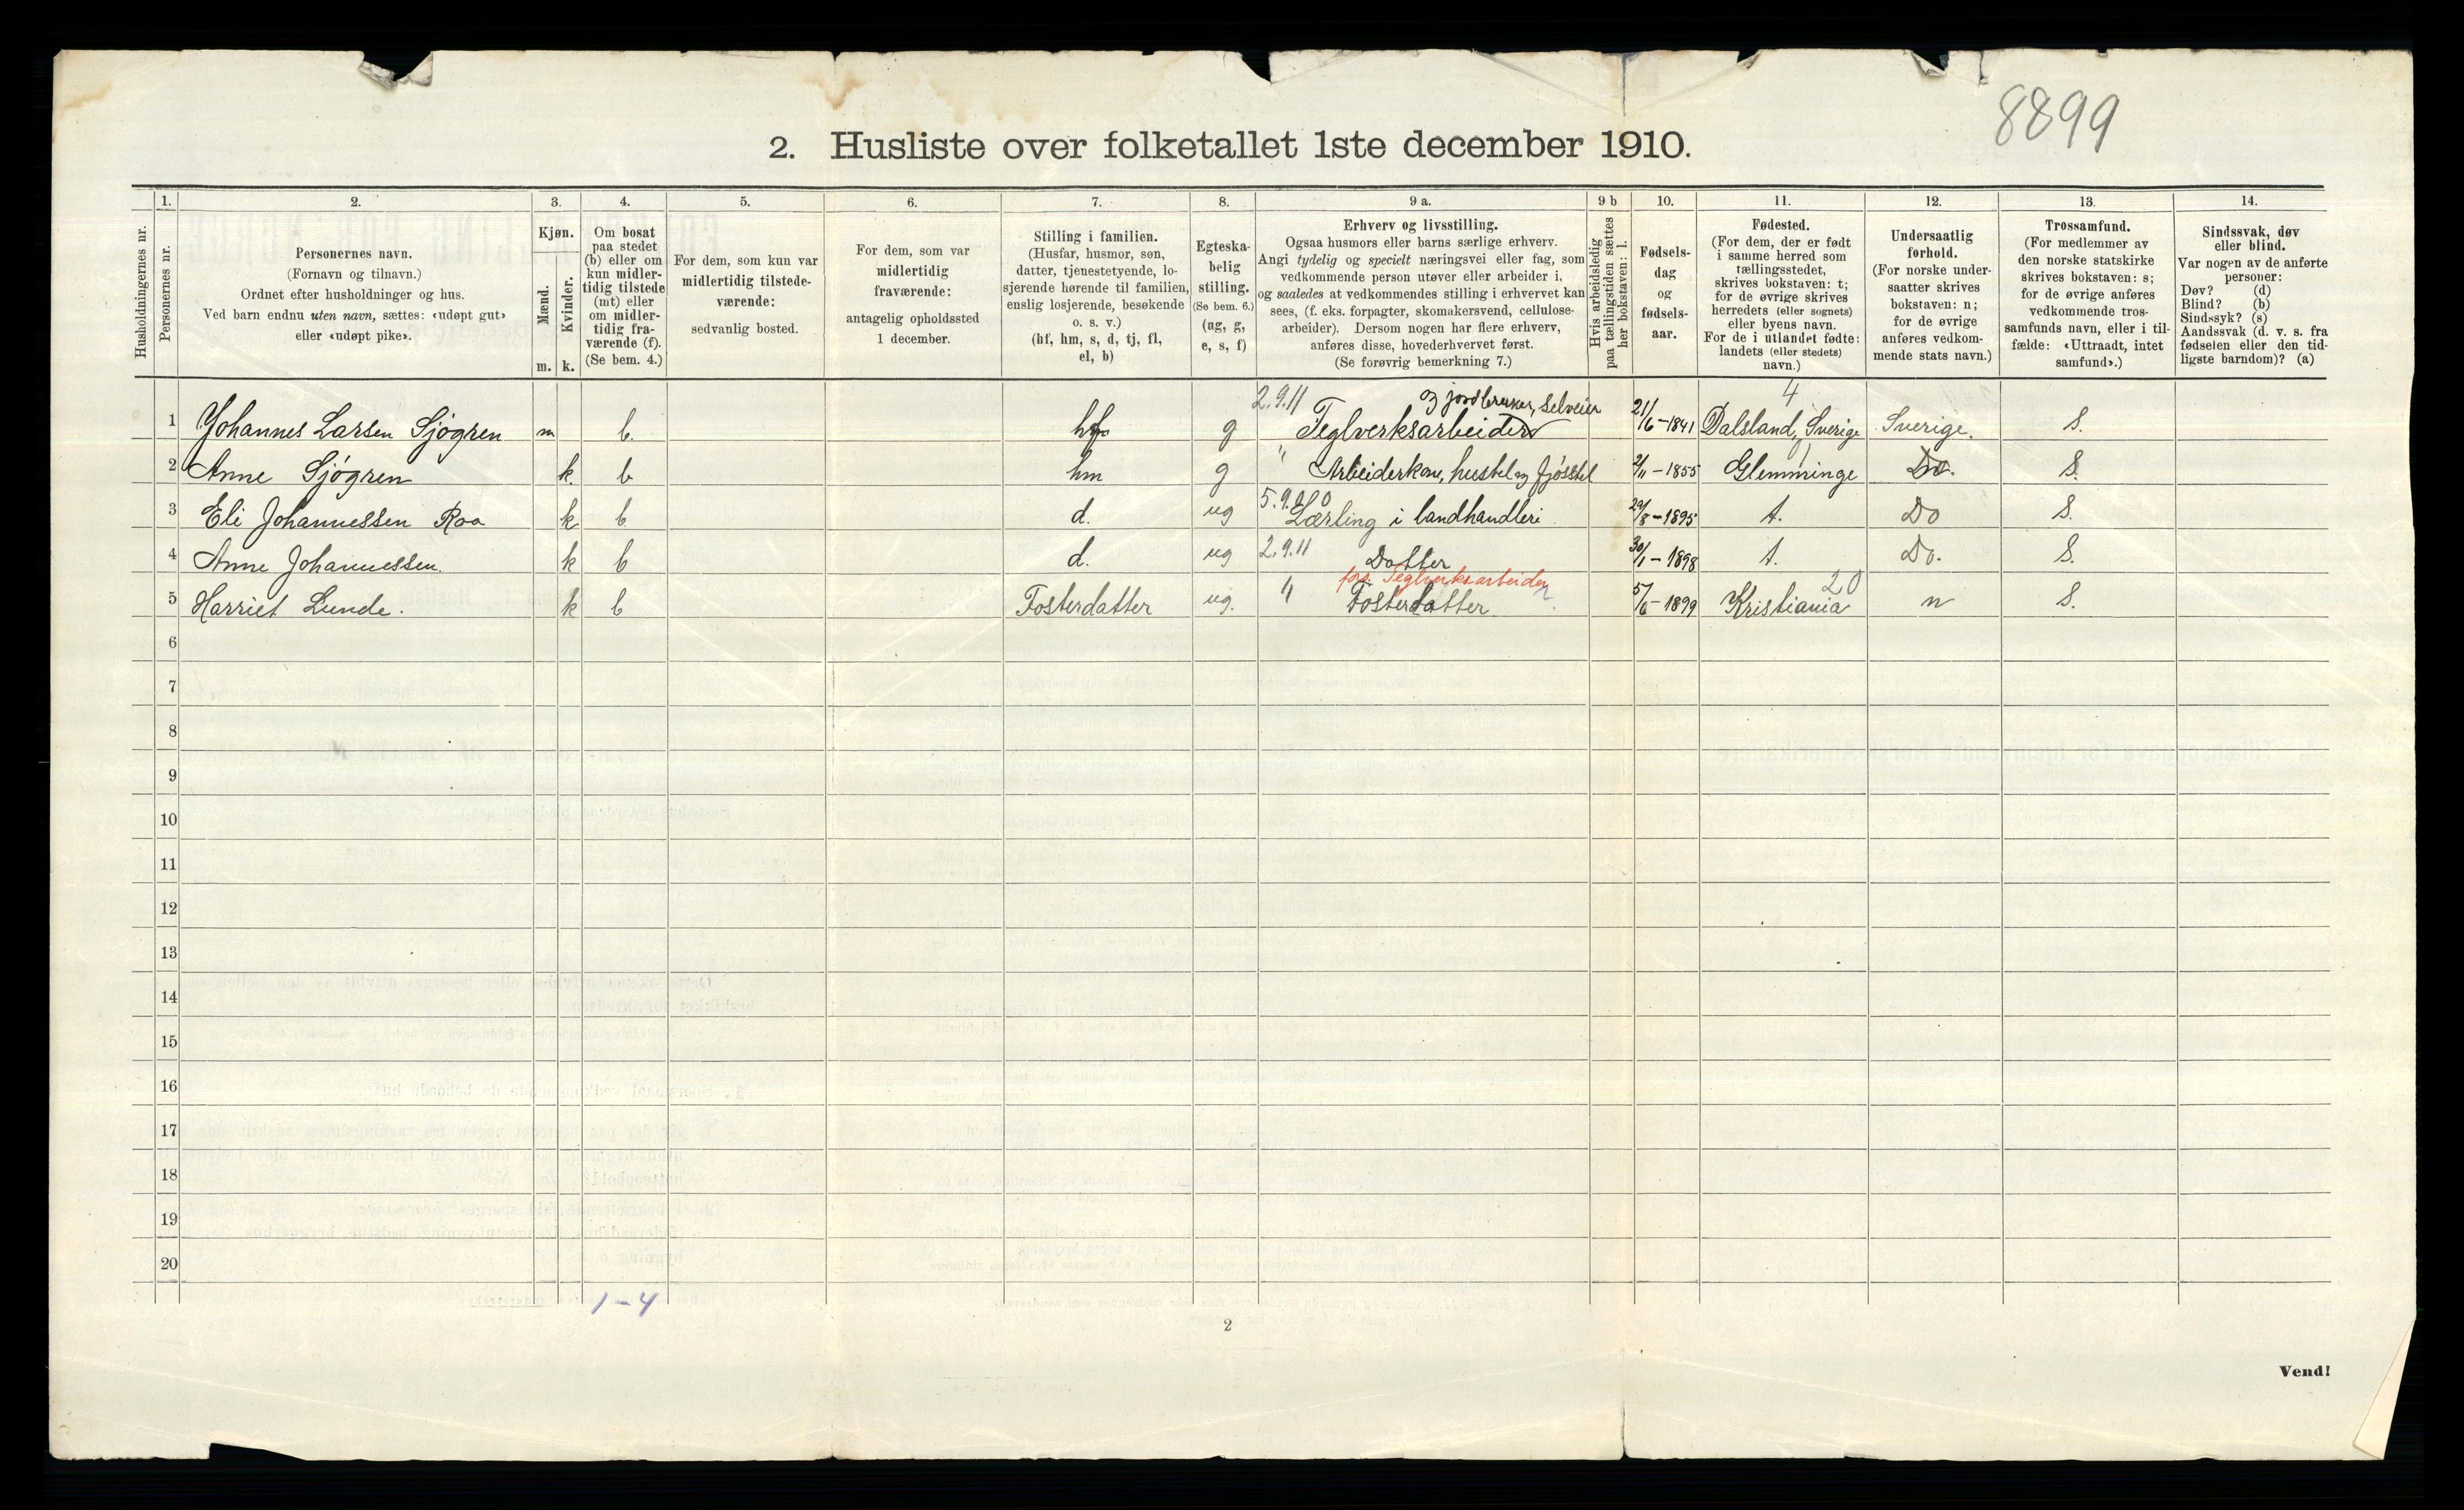 8899
2. Husliste over folketallet 1ste december 1910.
Husholdningernes nr.
1.
Personernes nr.
2.
Personernes navn.
(Fornavn og tilnavn.)
Ordnet efter husholdninger og hus.
Ved barn endnu uten navn, sættes: «udøpt gut»
eller «udøpt pike».
3.
Kjøn.
Mænd.
Kvinder.
m.
k.
4.
Om bosat
paa stedet
(b) eller om
kun midler-
tidig tilstede
(mt) eller
om midler-
tidig fra-
værende (f).
(Se bem. 4.)
5.
For dem, som kun var
midlertidig tilstede-
værende:
sedvanlig bosted.
6.
For dem, som var
midlertidig
fraværende:
antagelig opholdssted
1 december.
7.
Stilling i familien.
(Husfar, husmor, søn,
datter, tjenestetyende, lo-
sjerende hørende til familien,
enslig losjerende, besøkende
o. s. v.)
(hf, hm, s, d, tj, fl,
el, b)
8.
Egteska-
belig
stilling.
(Se bem. 6.)
(ug, g,
e, s, f)
9 a.
Erhverv og livsstilling.
Ogsaa husmors eller barns særlige erhverv.
Angi tydelig og specielt næringsvei eller fag, som
vedkommende person utøver eller arbeider i,
og saaledes at vedkommendes stilling i erhvervet kan
sees, (f. eks. forpagter, skomakersvend, cellulose-
arbeider). Dersom nogen har flere erhverv,
anføres disse, hovederhvervet først.
(Se forøvrig bemerkning 7.)
9 b
Hvis arbeidsledig
paa tællingstiden sættes
her bokstaven: l.
10.
Fødsels-
dag
og
fødsels-
aar.
11.
Fødested.
(For dem, der er født
i samme herred som
tællingsstedet,
skrives bokstaven: t;
for de øvrige skrives
herredets (eller sognets)
eller byens navn.
For de i utlandet fødte:
landets (eller stedets)
navn.)
12.
Undersaatlig
forhold.
(For norske under-
saatter skrives
bokstaven: n;
for de øvrige
anføres vedkom-
mende stats navn.)
13.
Trossamfund.
(For medlemmer av
den norske statskirke
skrives bokstaven: s;
for de øvrige anføres
vedkommende tros-
samfunds navn, eller i til-
fælde: «Uttraadt, intet
samfund».)
14.
Sindssvak, døv
eller blind.
Var nogen av de anførte
personer:
Døv? (d)
Blind? (b)
Sindssyk? (s)
Aandssvak (d. v. s. fra
fødselen eller den tid-
ligste barndom)? (a)
2.9.11 og jordbruker, Selveier 4
1 Johannes Larsen Sjögren m b. hf g Teglverksarbeider 21/6-1841 Dalsland, Sverige Sverige. S.
2 Anne Sjögren k. b hm g " Arbeiderkone, hustel og fjösstel 2/11-1855 Glemminge Do. S.
3 Eli Johannessen Roa k b d. ug 5.9.00 Lærling i landhandleri 29/8-1895 t. Do S.
4 Anne Johannessen. k b d. ug 2.9.11 Datter 30/1-1898 t. Do. S.
fors. Teglverksarbeider 20
5 Harriet Lunde. k b Fosterdatter ug. " Fosterdatter. 5/6-1899 Kristiania n S.
6
7
8
9
10
11
12
13
14
15
16
17
18
19
20
1-4
2
Vend!